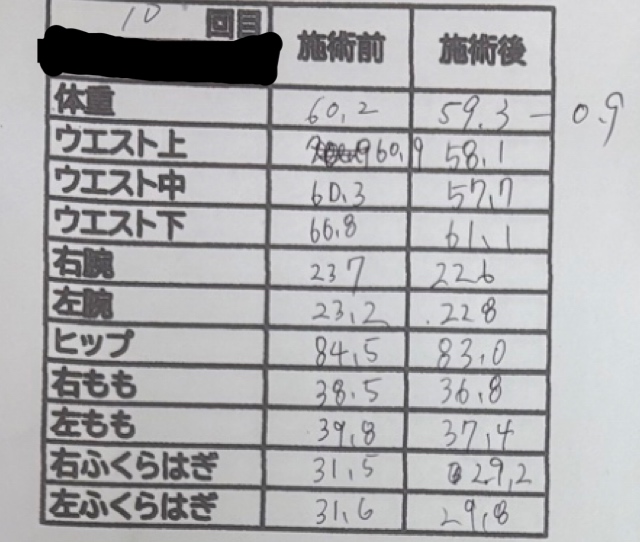 10 回目 施術前 施術後
体重 60.2 59.3 - 0.9
ウエスト上 60.9 58.1
ウエスト中 60.3 57.7
ウエスト下 66.8 61.1
右腕 237 226
左腕 23.2 .228
ヒップ 84.5 83.0
右もも 38.5 36.8
左もも 39.8 37.4
右ふくらはぎ 31.5 29.2
左ふくらはぎ 31.6 29.8